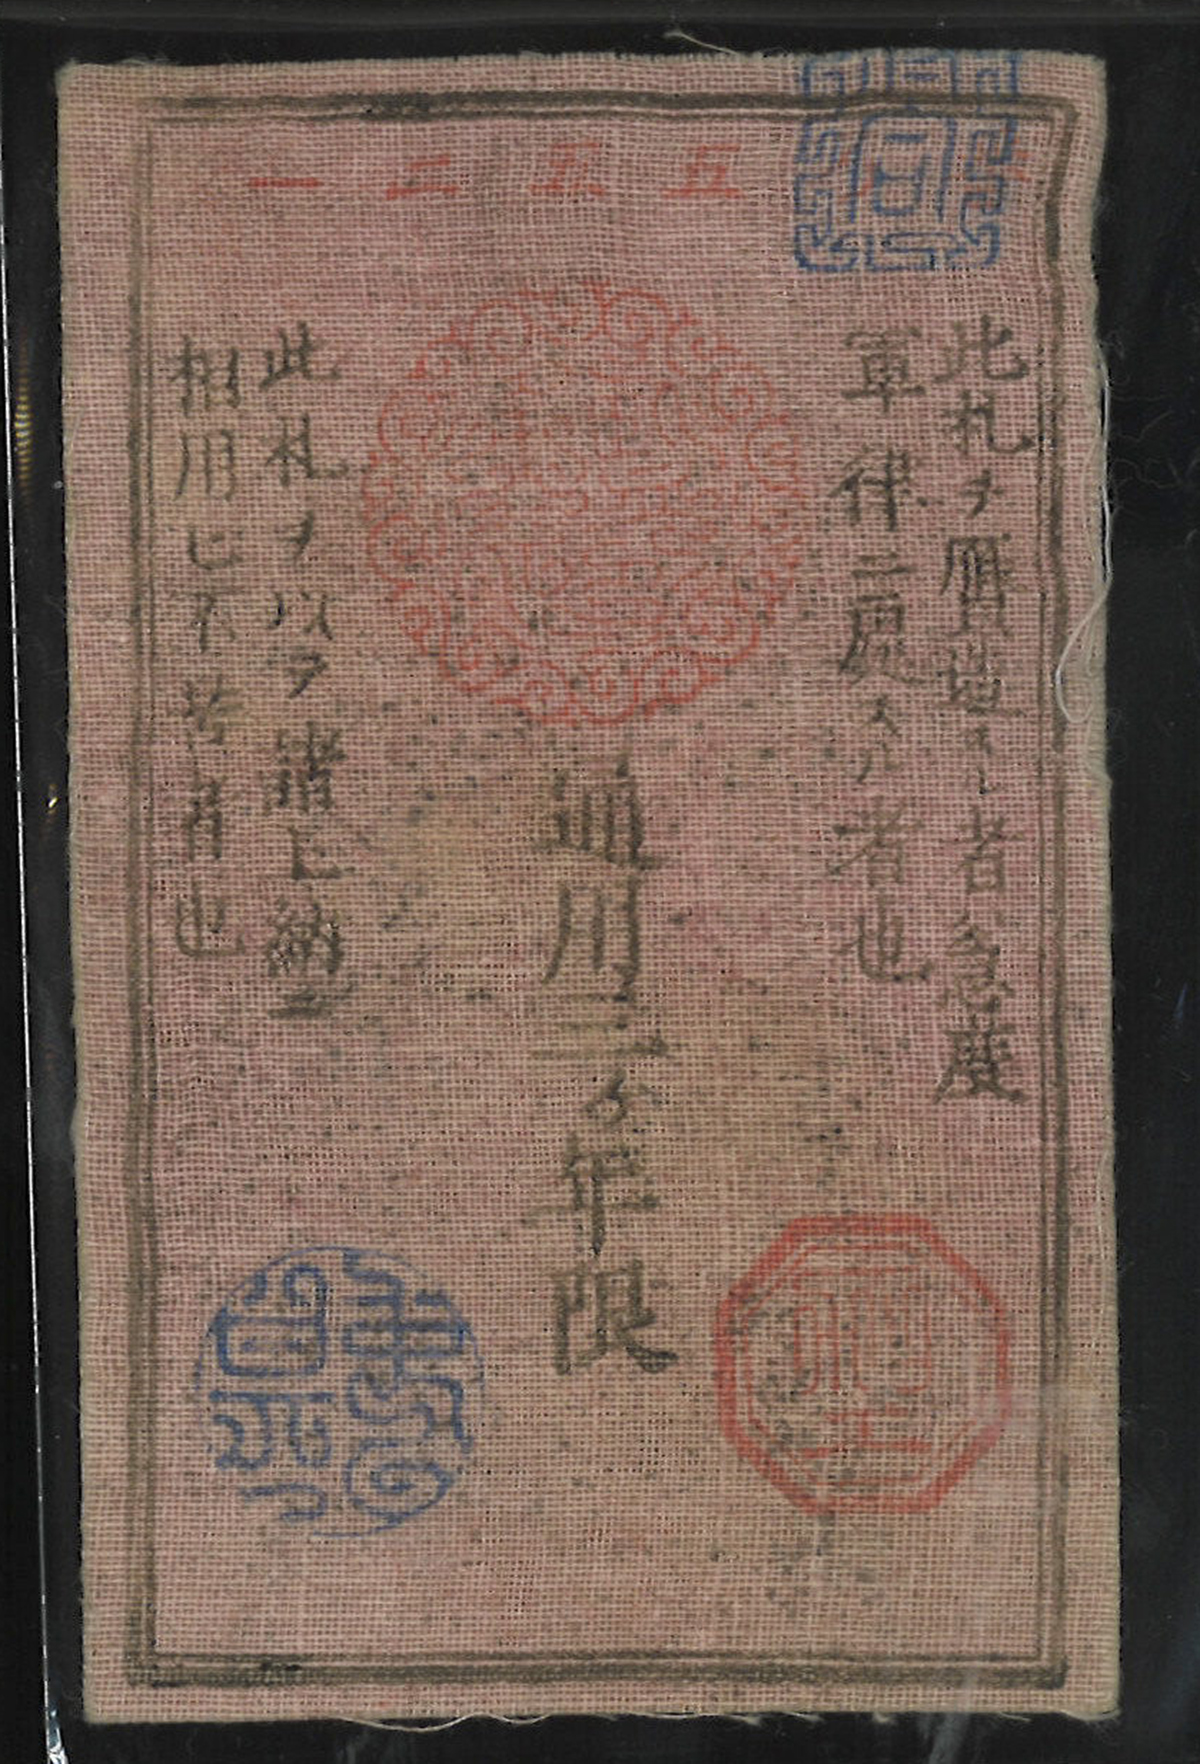 五五二一
此札ヲ贋造スル者ハ急度
軍律ニ處スル者也
通用三ヶ年限
此札ヲ以テ諸上納ニ
相用ヒ不苦者也